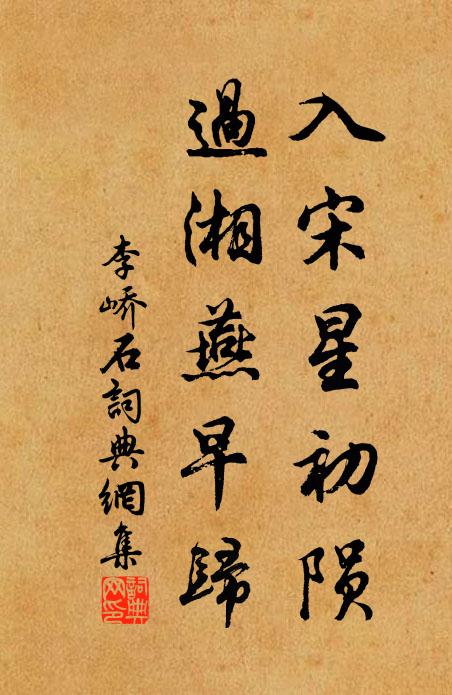 入宋星初陨
過湘燕早歸
李峤石詞典網集
詞典網印